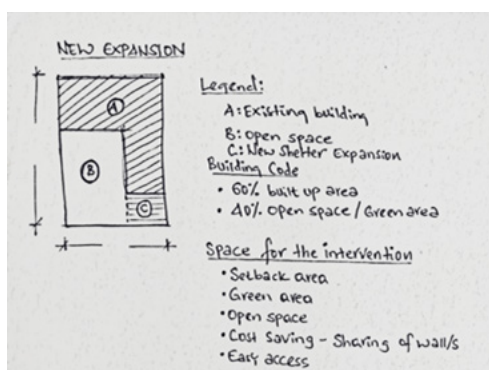 NEW EXPANSION
A
B
C
Legend:
A: Existing building
B: Open space
C: New Shelter Expansion
Building Code
• 60% built up area
• 40% open space / Green area
Space for the intervention
• Setback area
• Green area
• Open space
• Cost Saving - Sharing of wall/s
• Easy access